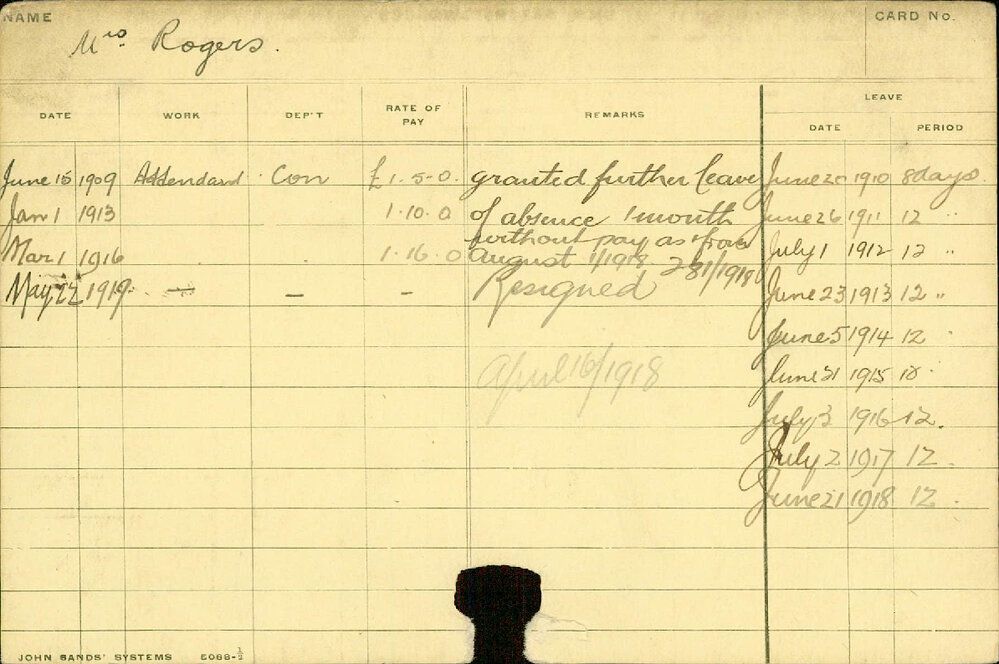 NAME
CARD No.
Mrs Rogers.
DATE WORK DEP'T RATE OF PAY REMARKS LEAVE
DATE PERIOD
June 15 1909 Attendant Con £1.5-0. granted further leave June 20 1910 8 days.
Jan 1 1913 1.10.0 of absence 1 month June 26 1911 12 "
without pay as from
Mar 1 1916 1.16.0 August 1/1918 July 1 1912 12 "
May 22 1919. — — — Resigned June 23 1913 12 "
June 5 1914 12 "
April 16/1918 June 21 1915 12 "
July 3 1916 12.
July 2 1917 12.
June 21 1918 12.
JOHN SANDS' SYSTEMS 5088-½